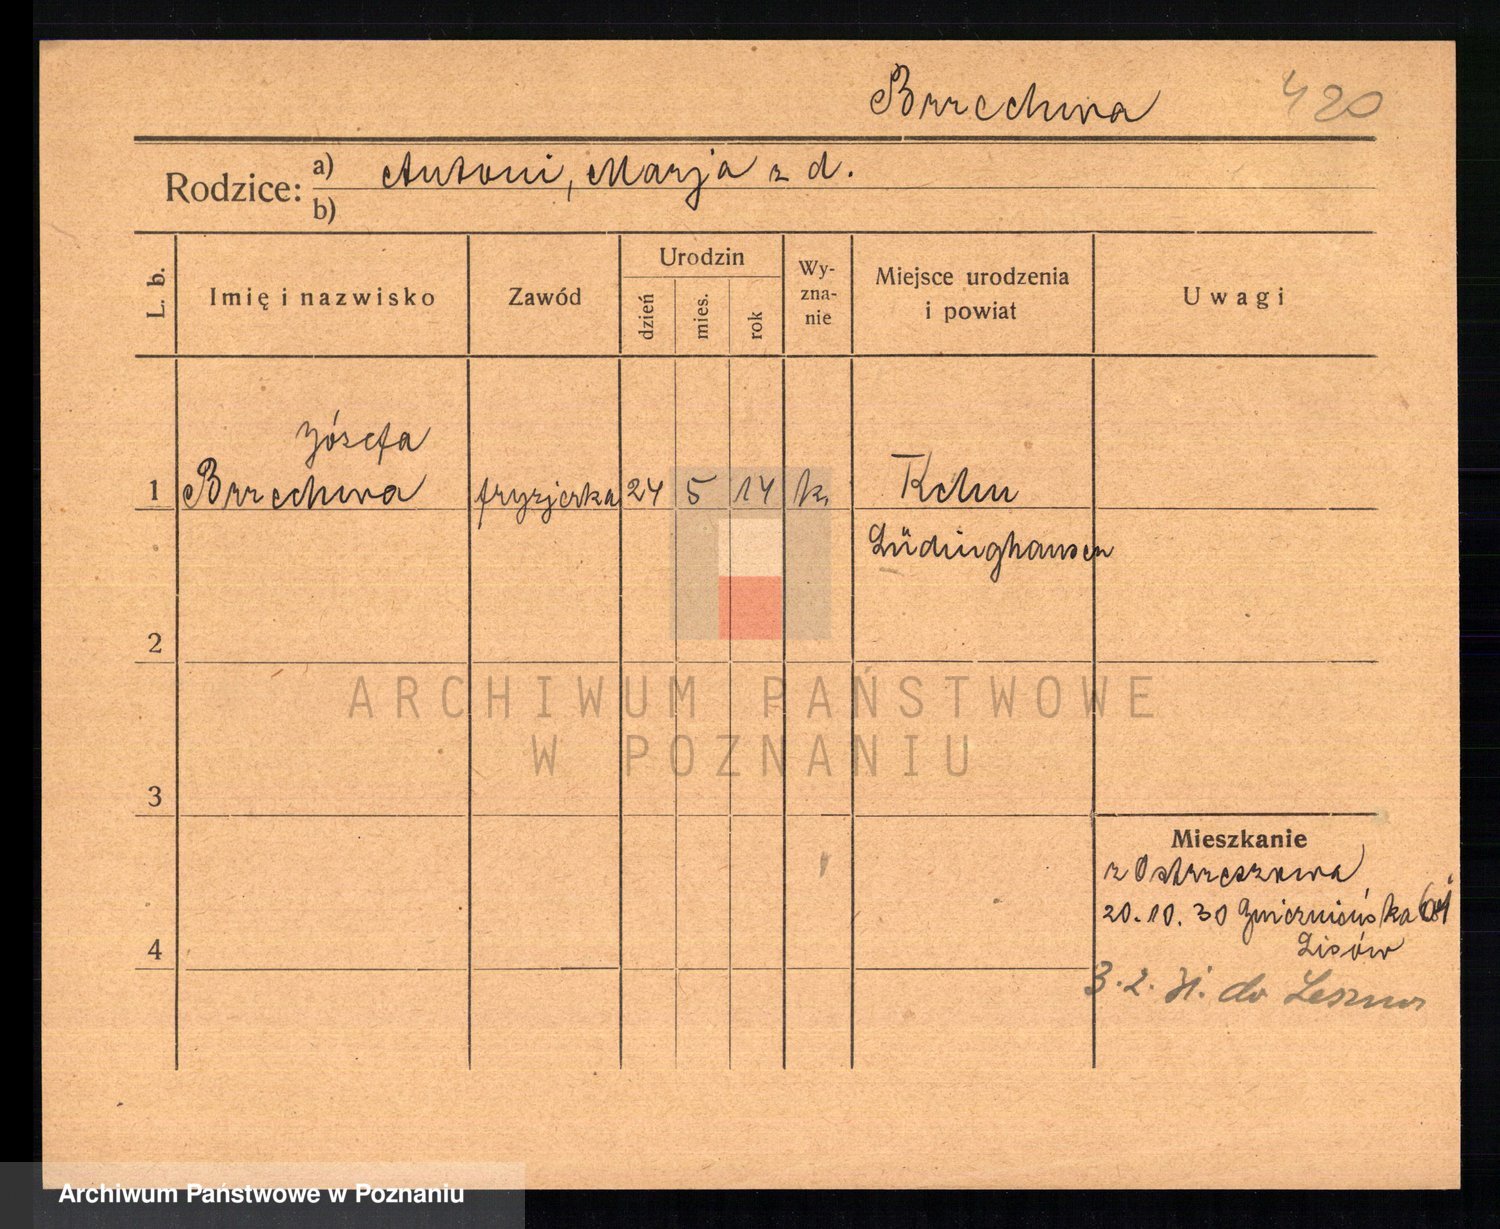 Brzechwa 420
Rodzice: a) Antoni, Marja z d.
b)
L. b.
Imię i nazwisko
Zawód
Urodzin
dzień
mies.
rok
Wy-
zna-
nie
Miejsce urodzenia
i powiat
Uwagi
Józefa
1 Brzechwa fryzjerka 24 5 14 k. Kehn
Lüdinghausen
2
ARCHIWUM PAŃSTWOWE
W POZNANIU
3
Mieszkanie
z Ostrzeszowa
20.10.30
4
Lisów
3.2. do Leszno
Archiwum Państwowe w Poznaniu